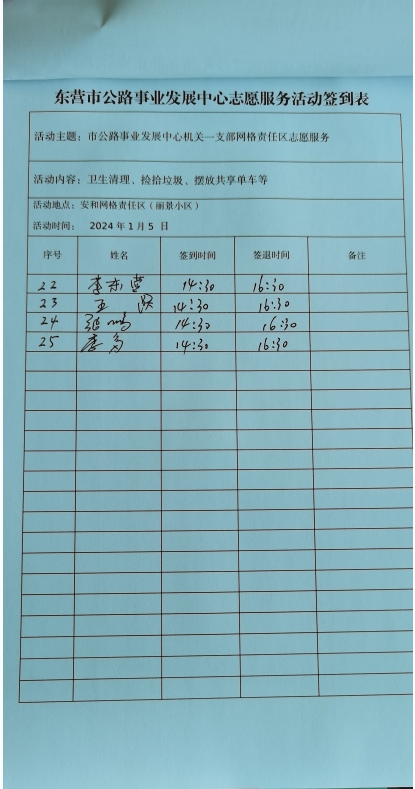 东营市公路事业发展中心志愿服务活动签到表
活动主题：市公路事业发展中心机关一支部网格责任区志愿服务
活动内容：卫生清理、捡拾垃圾、摆放共享单车等
活动地点：安和网格责任区（丽景小区）
活动时间： 2024年1月5日
序号 姓名 签到时间 签退时间 备注
22 李 14:30 16:30
23 14:30 16:30
24 张鸣 14:30 16:30
25 李 14:30 16:30